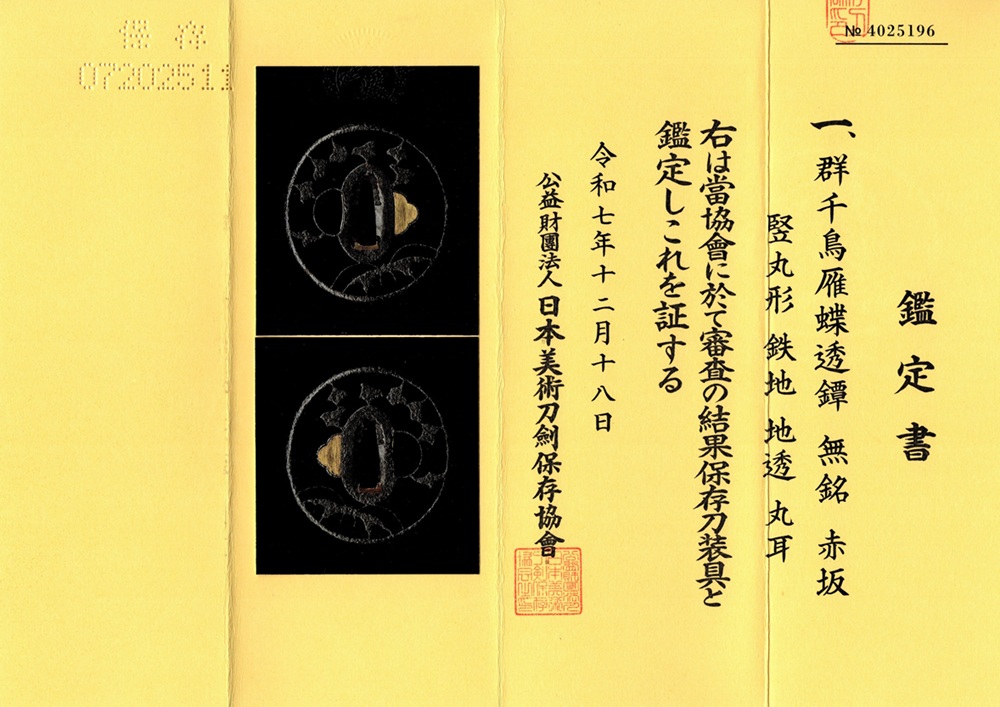 № 4025196
鑑定書
一、群千鳥雁蝶透鐔 無銘 赤坂
竪丸形 鉄地 地透 丸耳
右は當協會に於て審査の結果保存刀装具と
鑑定しこれを証する
令和七年十二月十八日
公益財團法人 日本美術刀劍保存協會
保存
07202511